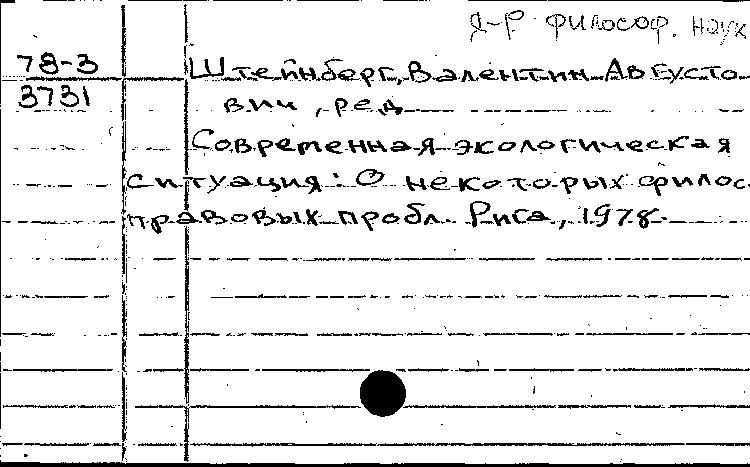 д-р философ. наук
78-3
3731
Штейнберг, Валентин Августо-
вич, ред
Современная экологическая
ситуация: О некоторых филос.
правовых пробл. Рига, 1978.